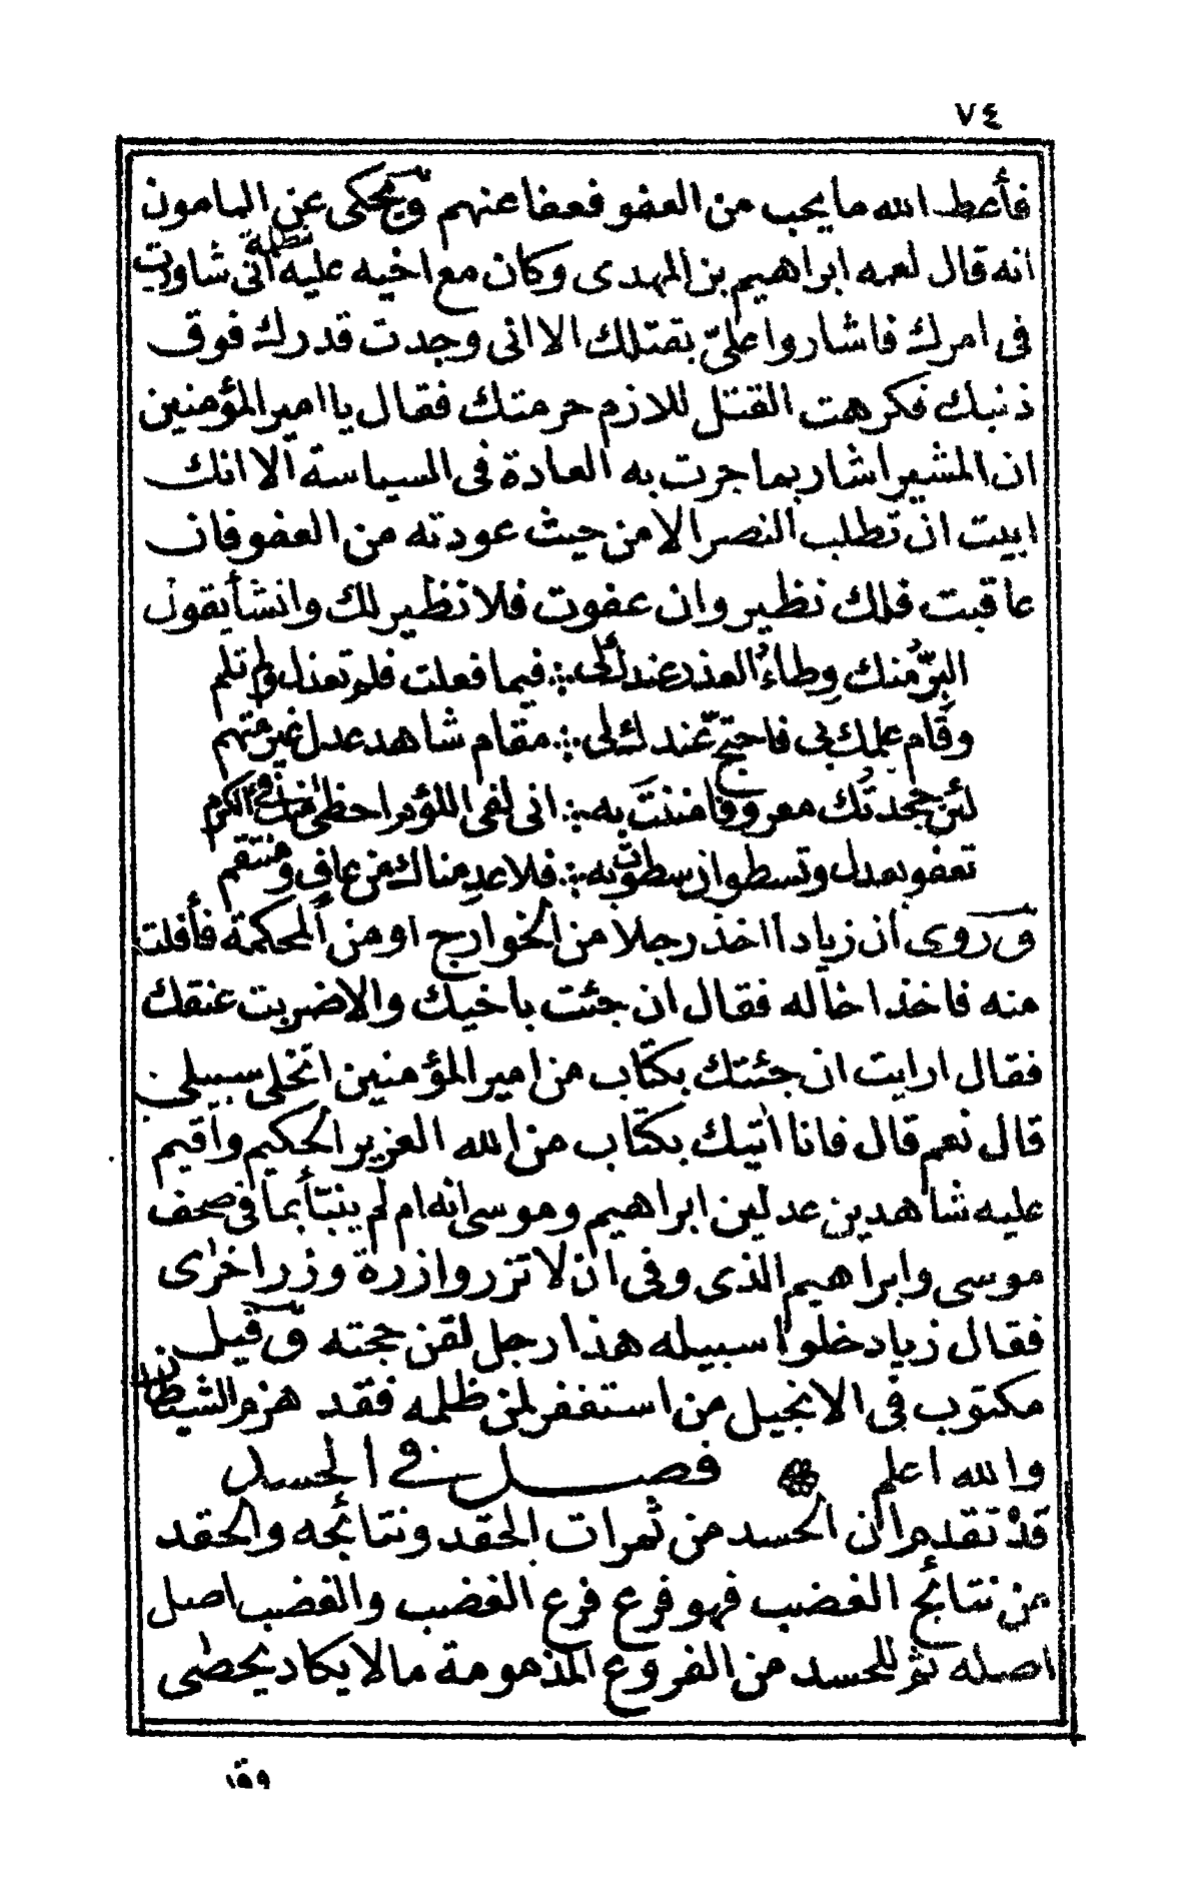 ٧٤
فأعط الله ما يحب من العفو فعفا عنهم ويحكى عن المامون
انه قال لعمه ابراهيم بن المهدى وكان مع اخيه عليه انى شاورت
فى امرك فاشاروا علىّ بقتلك الا انى وجدت قدرك فوق
ذنبك فكرهت القتل للازم حرمتك فقال يا امير المؤمنين
ان المشير اشار بما جرت به العادة فى السياسة الا انك
ابيت ان تطلب النصر الا من حيث عودته من العفو فان
عاقبت فلك نظير وان عفوت فلا نظير لك وانشأ يقول
البرّ منك وطاءُ العذر عندك لى ∴ فيما فعلت فلم تعذل ولم تلم
وقام علمك بى فاحتج عندك لى ∴ مقام شاهد عدل غير متهم
لئن جحدتك معروفا مننت به ∴ انى لفى اللؤم احظى منك فى الكرم
تعفو بعدل وتسطو ان سطوت به ∴ فلا عدمناك من عاف ومنتقم
وروى ان زيادا اخذ رجلا من الخوارج او من المحكمة فأفلت
منه فاخذ اخاله فقال ان جئت باخيك والا ضربت عنقك
فقال ارايت ان جئتك بكتاب من امير المؤمنين اتخلى سبيلى
قال نعم قال فانا اتيك بكتاب من الله العزيز الحكيم واقيم
عليه شاهدين عدلين ابراهيم وموسى انه ام لم ينبأ بما فى صحف
موسى وابراهيم الذى وفى ان لا تزر وازرة وزر اخرى
فقال زياد خلوا سبيله هذا رجل لقن حجته وقيل
مكتوب فى الانجيل من استغفر لمن ظلمه فقد هزم الشيطان
والله اعلم فصل فى الحسد
قد تقدم ان الحسد من ثمرات الحقد ونتائجه والحقد
من نتائج الغضب فهو فرع فرع الغضب والغضب اصل
اصله ثم للحسد من الفروع المذمومة مالا يكاد يحصى
وقد